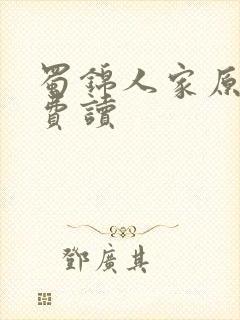 蜀錦人家原
費讀
鄧廣其